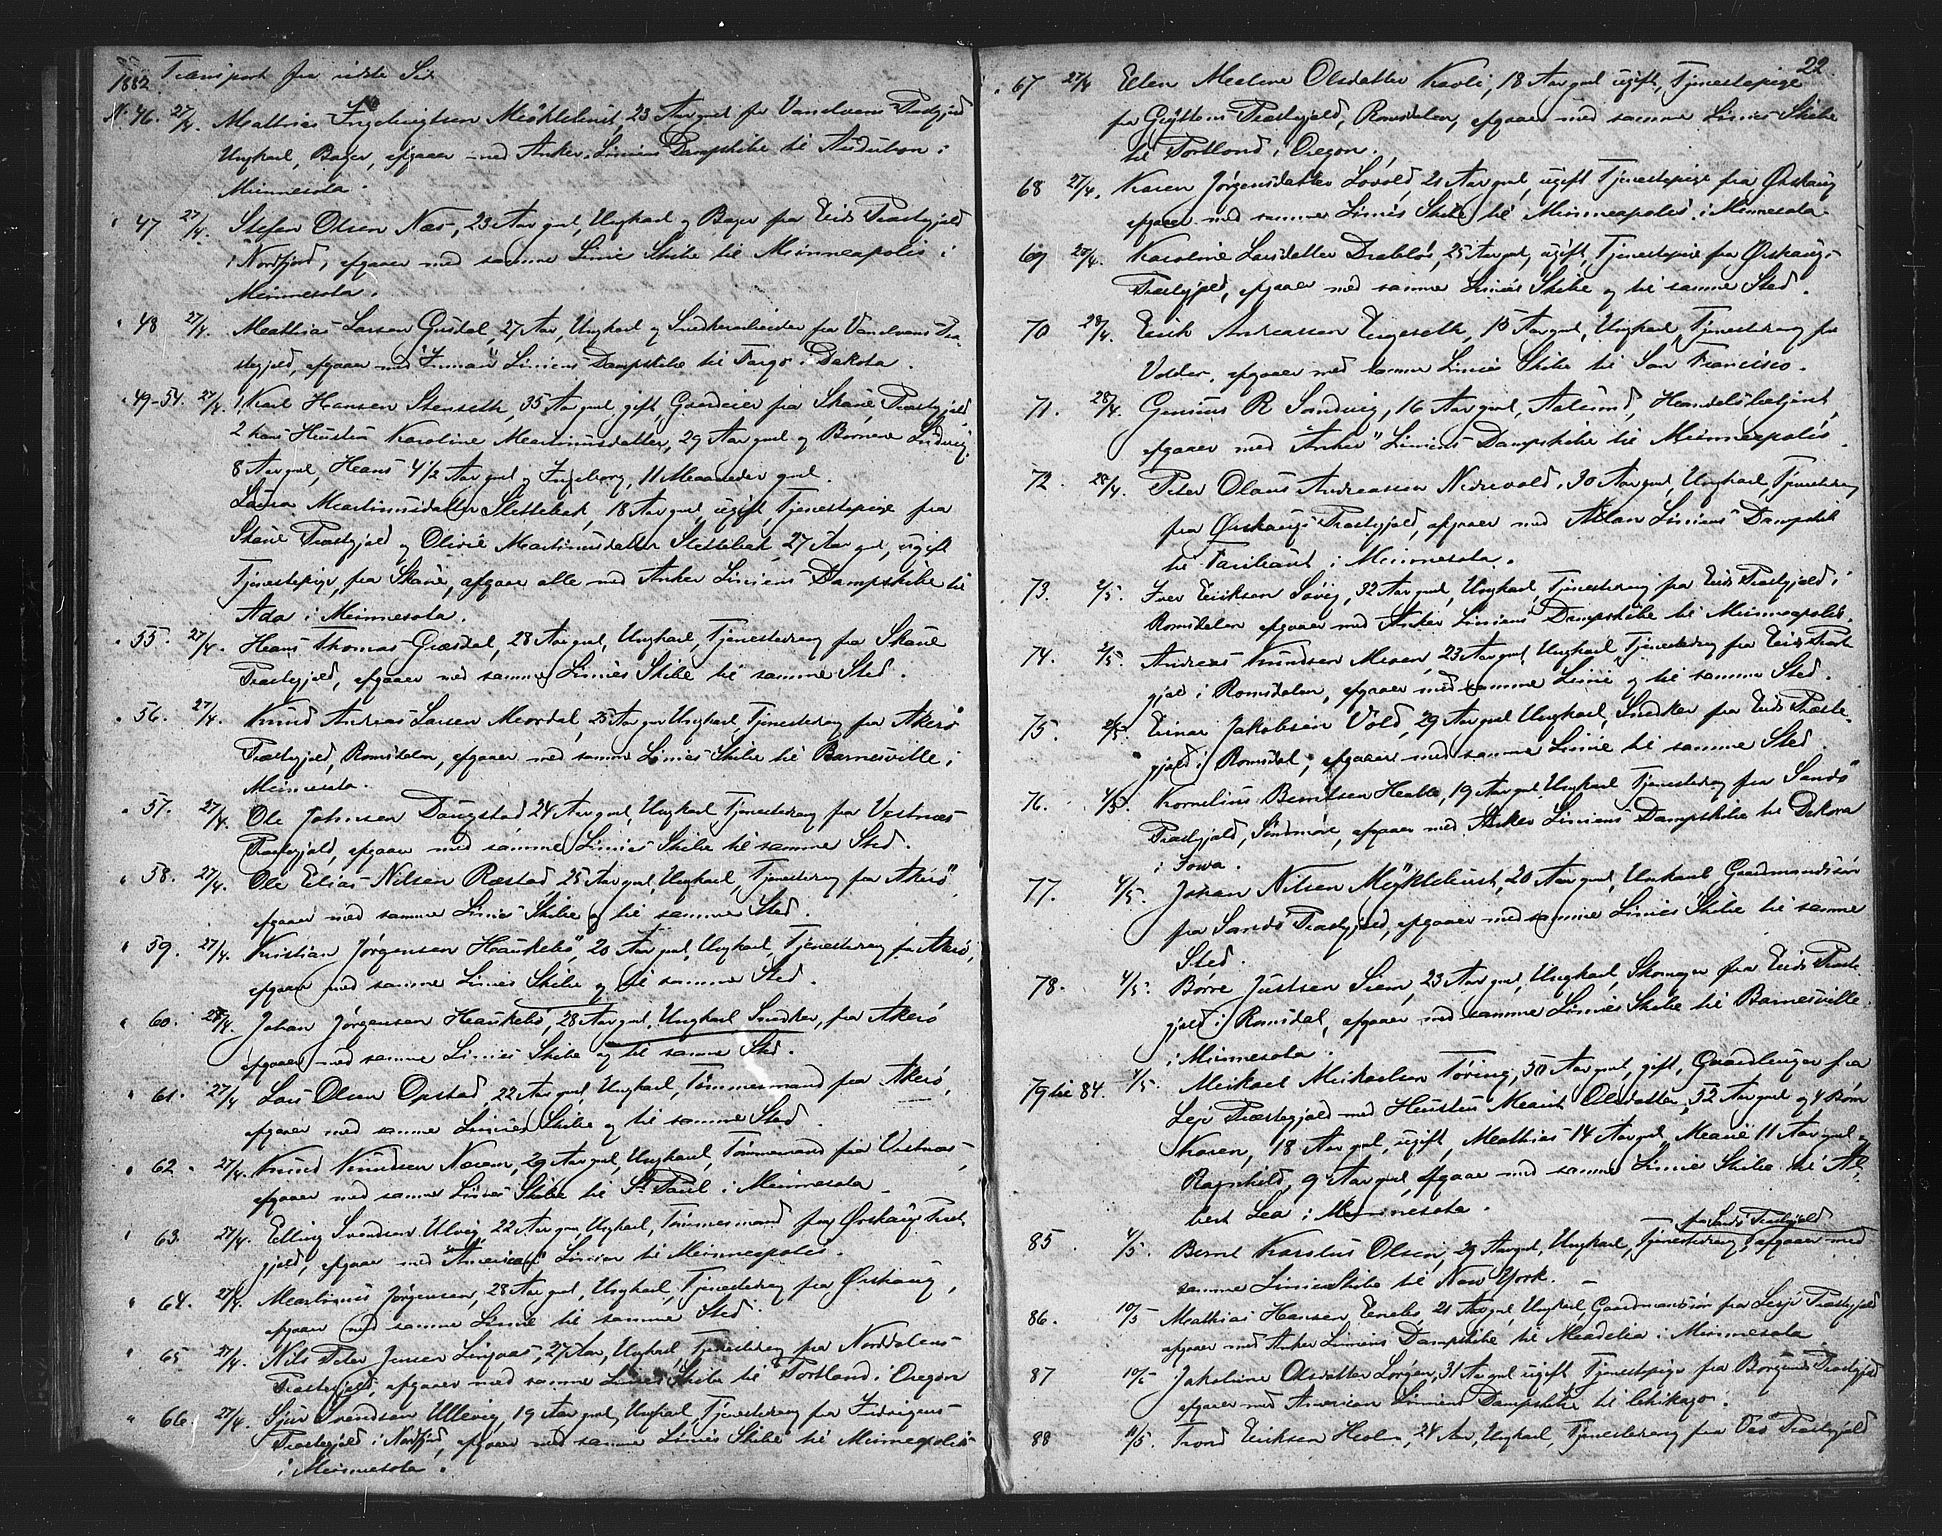 1882. Transport fra sidste Side
No 46. 27/4. Mathias Ingebrigtsen Myklebust, 23 Aar gml fra Vanelvens Præstegjeld
Ungkarl, Bager, afgaaer med Anker Liniens Dampskibe til Audubon i
Minnesota.
" 47 27/4. Stefen Olsen Næs, 23 Aar gml, Ungkarl og Bager fra Eids Præstegjeld
i Nordfjord, afgaaer med samme Linie Skibe til Minneapolis i
Minnesota.
" 48 27/4. Mathias Larsen Gusdal, 27 Aar, Ungkarl og Snedkerarbeider fra Vanelvens Præ-
stegjeld, afgaaer med "Inman" Liniens Dampskibe til Fargo i Dakota.
" 49-54. 27/4. 1, Karl Hansen Stenseth, 35 Aar gml, gift, Gaardeier fra Skaue Præstegjeld,
2 hans Hustru Karoline Martinusdatter, 29 Aar gml og Børnene Ludvig,
8 Aar gml, Hans 4 1/2 Aar gml og Ingeborg, 11 Maaneder gml.
Laura Martinusdatter Slettebak, 18 Aar gml, ugift, Tjenestepige fra
Skaue Præstegjeld og Olivie Martinusdatter Slettebak 27 Aar gml, ugift
Tjenestepige, fra Skaue, afgaaer alle med Anker Liniens Dampskibe til
Ada i Minnesota.
" 55. 27/4. Hans Thomas Græsdal, 28 Aar gml, Ungkarl, Tjenestedreng fra Skaue
Præstegjeld, afgaaer med samme Linies Skibe til samme Sted.
" 56. 27/4. Knud Andreas Larsen Mordal, 25 Aar gml Ungkarl, Tjenestedreng fra Akerø
Præstegjeld, Romsdalen, afgaaer med samme Linies Skibe til Barnesville i
Minnesota.
" 57. 27/4. Ole Johnsen Daugstad, 24 Aar gml, Ungkarl Tjenestedreng fra Vestnæs
Præstegjeld, afgaaer med samme Linies Skibe til samme Sted.
" 58. 27/4. Ole Elias Nilsen Ræstad 25 Aar gml, Ungkarl, Tjenestedreng fra Akerø
afgaaer med samme Linies Skibe og til samme Sted.
" 59. 27/4. Kristian Jørgensen Haukebø, 20 Aar gml, Ungkarl, Tjenestedreng fra Akerø,
afgaaer med samme Linies Skibe og til samme Sted.
" 60. 27/4. Johan Jørgensen Haukebø, 28 Aar gml, Ungkarl Snedker, fra Akerø
afgaaer med samme Linies Skibe og til samme Sted.
" 61. 27/4 Lars Olsen Opstad, 22 Aar gml, Ungkarl, Tømmermand fra Akerø,
afgaaer med samme Linies Skibe og til samme Sted.
" 62. 27/4. Knud Knudsen Næren, 29 Aar gml, Ungkarl, Tømmermand fra Vestnæs,
afgaaer med samme Linies Skibe til St Paul i Minnesota.
" 63. 27/4. Elling Svendsen Ulvig, 22 Aar gml Ungkarl, Tømmermand fra Ørskaug Præste
gjeld, afgaaer med "American" Linien til Minneapolis.
" 64. 27/4. Martinus Jørgensen, 28 Aar gml, Ungkarl, Tjenestedreng fra Ørskaug,
afgaaer med samme Linie til samme Sted.
" 65 27/4. Nils Peter Jensen Lingaas, 27 Aar, Ungkarl Tjenestedreng fra Norddalens
Præstegjeld, afgaaer med samme Linies Skibe til Portland i Oregon
" 66. 27/4. Sjur Svendsen Ullevig, 19 Aar gml, Ungkarl, Tjenestedreng fra Indvigens
Præstegjeld i Nordfjord, afgaaer med samme Linies Skibe til Minneapolis
i Minnesota.
22.
" 67 27/4 Ellen Mathine Olsdatter Kavli, 18 Aar gml ugift, Tjenestepige
fra Gryttens Præstegjeld, Romsdalen, afgaaer med samme Linies Skibe
til Portland i Oregon.
68 27/4. Karen Jørgensdatter Lovold, 21 Aar gml, ugift Tjenestepige fra Ørskaug
afgaaer med samme Linies Skibe til Minneapolis i Minnesota.
69 27/4. Karoline Larsdatter Drabløs, 25 Aar gml, ugift, Tjenestepige fra Ørskaugs
Præstegjeld, afgaaer med samme Linies Skibe og til samme Sted.
70 28/4. Erik Andreassen Engeseth, 15 Aar gml, Ungkarl, Tjenestedreng fra
Volden, afgaaer med samme Linies Skibe til San Francisco.
71. 28/4. Gunius R Sandvig, 16 Aar gml, Aalesund, Handelsbetjent,
afgaaer med "Anker" Liniens Dampskibe til Minneapolis.
72. 28/4. Peter Olaus Andreassen Nedrevold, 30 Aar gml, Ungkarl, Tjenestedreng
fra Ørskaugs Præstegjeld, afgaaer med Allan Liniens Dampskib
til Faribault i Minnesota.
73. 2/5. Iver Eriksen Søvig, 32 Aar gml, Ungkarl, Tjenestedreng fra Eids Præstegjeld i
Romsdalen afgaaer med Anker Liniens Dampskibe til Minneapolis.
74. 2/5. Andreas Knudsen Moen, 23 Aar gml Ungkarl Tjenestedreng fra Eids Præste
gjeld i Romsdalen, afgaaer med samme Linie og til samme Sted.
75. 2/5. Einar Jakobsen Vold, 29 Aar gml Ungkarl, Snedker fra Eids Præste-
gjeld i Romsdal, afgaaer med samme Linie til samme Sted.
76. 4/5. Kornelius Berntsen Hatle, 19 Aar gml Ungkarl Tjenestedreng fra Sandø
Præstegjeld, Søndmøre, afgaaer med Anker Liniens Dampskibe til Dekora
i Iowa.
77. 4/5. Johan Nilsen Myklebust, 20 Aar gml, Unkarl Gaardmandssøn
fra Sandø Præstegjeld, afgaaer med samme Linies Skibe til samme
Sted.
78. 4/5. Børre Justsen Siem, 23 Aar gml, Ungkarl, Skomager fra Eids Præste
gjeld i Romsdal, afgaaer med samme Linies Skibe til Barnesville
i Minnesota.
79 til 84. 4/5. Mikael Mikaelsen Tøring, 50 Aar gml, gift, Gaardbruger fra
Lesje Præstegjeld med Hustru Marit Olsdatter, 52 Aar gml og 4 Børn
Karen, 18 Aar gml, ugift, Mathias 14 Aar gml, Marie 11 Aar gml og
Ragnhild, 9 Aar gml, afgaaer med samme Linies Skibe til Al-
bert Lea i Minnesota.
fra Sandø Præstegjeld
85. 4/5. Bernt Karolus Olsen, 29 Aar gml, Ungkarl, Tjenestedreng, afgaaer med
samme Linies Skibe til New York.
86. 10/5 Mathias Hansen Enebo, 21 Aar gml, Ungkarl, Gaardmandssøn fra Lesje Præstegjeld
afgaaer med Anker Liniens Dampskibe til Madelia i Minnesota
87 10/5 Jakobine Olsdatter Lorgen, 31 Aar gml ugift Tjenestepige fra Borgunds Præstegjeld
afgaaer med American Liniens Dampskibe til Chikago.
88 11/5. Trond Eriksen Holm, 24 Aar, Ungkarl, Tjenestedreng fra Vos Præstegjeld